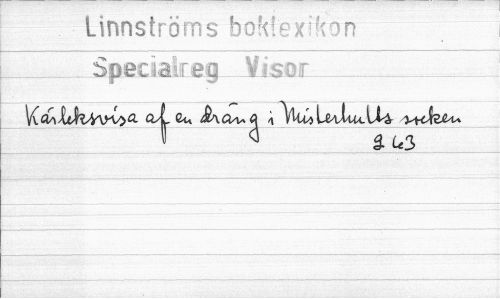 Linnströms boklexikon
Specialreg Visor
Kärleksvisa af en dräng i Misterhults socken
963